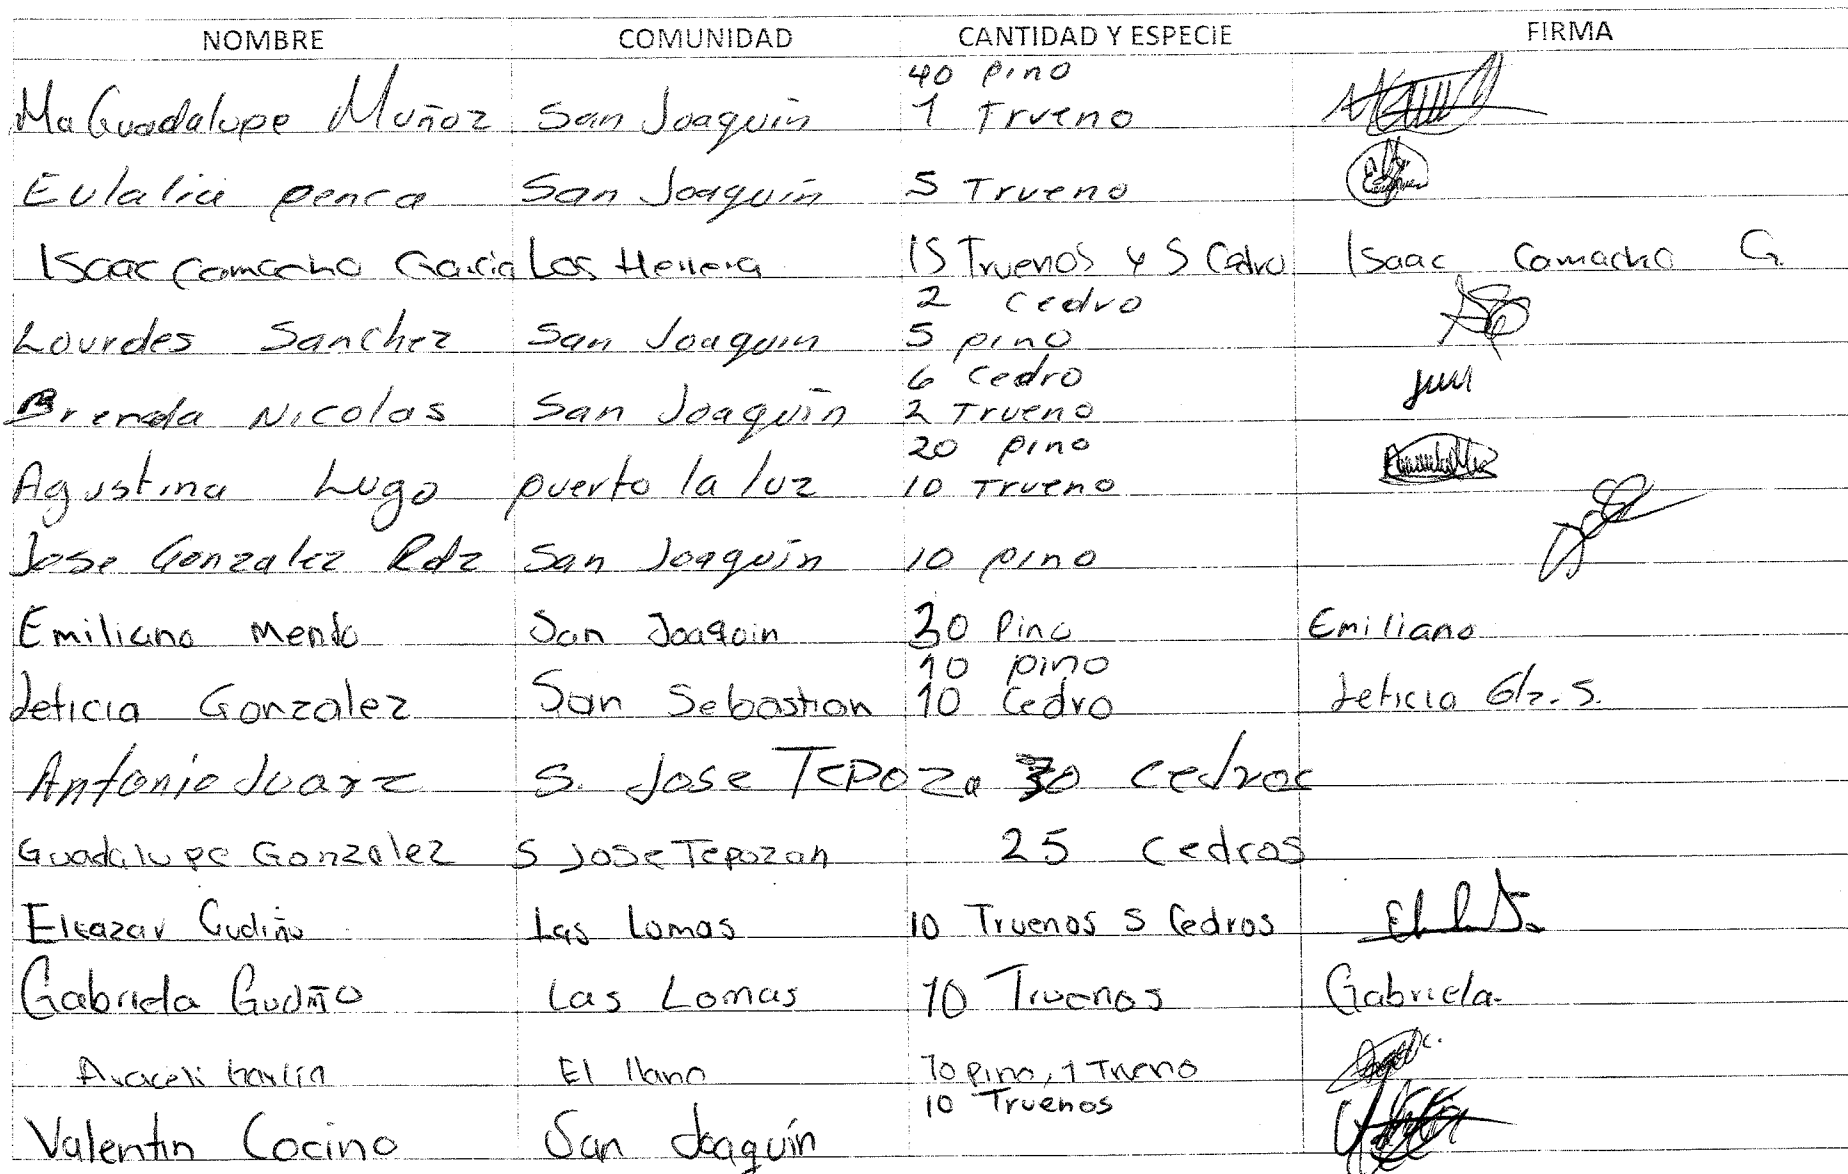 NOMBRE COMUNIDAD CANTIDAD Y ESPECIE FIRMA
40 pino
Ma Guadalupe Muñoz San Joaquin 1 Trueno
Eulalia penca San Joaquin 5 Trueno
Isaac Camacho Garcia Los Herrera 15 Truenos y 5 Cedro Isaac Camacho G.
2 cedro
Lourdes Sanchez San Joaquin 5 pino
6 cedro
Brenda Nicolas San Joaquin 2 Trueno
20 pino
Agustina Lugo puerto la luz 10 Trueno
Jose Gonzalez Rdz San Joaquin 10 pino
Emiliano San Joaquin 30 Pino Emiliano
10 pino
Leticia Gonzalez San Sebastian 10 Cedro Leticia Glz. S.
Antonio Juarz S. Jose Tepoza 30 cedros
Guadalupe Gonzalez S Jose Tepozan 25 cedros
Eleazar Gudiño Las Lomas 10 Truenos 5 Cedros
Gabriela Gudiño Las Lomas 10 Truenos Gabriela.
Araceli El llano 10 pino, 1 Trueno
10 Truenos
Valentin Cocino San Joaquín